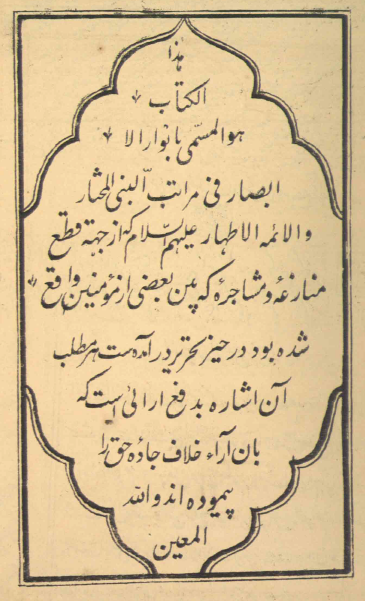 هذا
الکتاب
هو المسمّی بانوار الا
بصار فی مراتب النبی المختار
والائمه الاطهار علیهم السلام که از جهة قطع
منازعهٔ و مشاجرهٔ که بین بعضی از مؤمنین واقع
شده بود در حیز تحریر در آمده است هر مطلب
آن اشاره بدفع ارائی است که
بان آراء خلاف جادهٔ حق را
پیموده اند والله
المعین